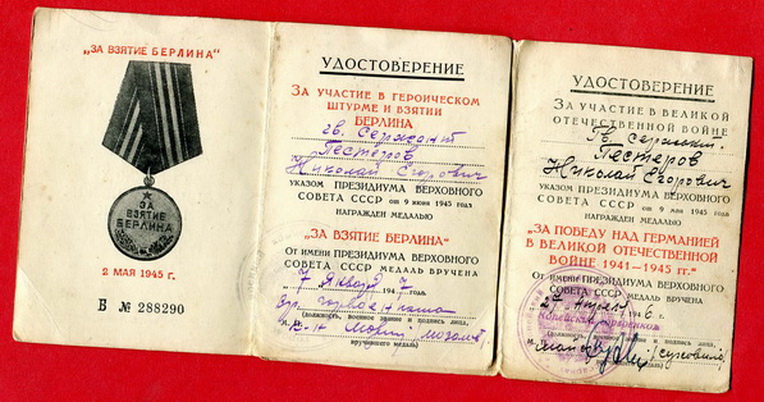 „ЗА ВЗЯТИЕ БЕРЛИНА“
ЗА
ВЗЯТИЕ
БЕРЛИНА
2 МАЯ 1945 г.
Б № 288290
УДОСТОВЕРЕНИЕ
ЗА УЧАСТИЕ В ГЕРОИЧЕСКОМ
ШТУРМЕ И ВЗЯТИИ
БЕРЛИНА
гв. Сержант
Пестеров
Николай Егорович
УКАЗОМ ПРЕЗИДИУМА ВЕРХОВНОГО
СОВЕТА СССР от 9 июня 1945 года
НАГРАЖДЕН МЕДАЛЬЮ
„ЗА ВЗЯТИЕ БЕРЛИНА“
От ИМЕНИ ПРЕЗИДИУМА ВЕРХОВНОГО
СОВЕТА СССР МЕДАЛЬ ВРУЧЕНА
7 Января 1947 года.
(должность, военное звание и подпись лица,
М. П.
вручившего медаль)
УДОСТОВЕРЕНИЕ
ЗА УЧАСТИЕ В ВЕЛИКОЙ
ОТЕЧЕСТВЕННОЙ ВОЙНЕ
Гв. сержант
Пестеров
Николай Егорович
УКАЗОМ ПРЕЗИДИУМА ВЕРХОВНОГО
СОВЕТА СССР от 9 мая 1945 года
НАГРАЖДЕН МЕДАЛЬЮ
„ЗА ПОБЕДУ НАД ГЕРМАНИЕЙ
В ВЕЛИКОЙ ОТЕЧЕСТВЕННОЙ
ВОЙНЕ 1941—1945 гг.“
От ИМЕНИ ПРЕЗИДИУМА ВЕРХОВНОГО
СОВЕТА СССР МЕДАЛЬ ВРУЧЕНА
апреля 1946 г.
(должность, военное звание и подпись лица,
М. П.
вручившего медаль)